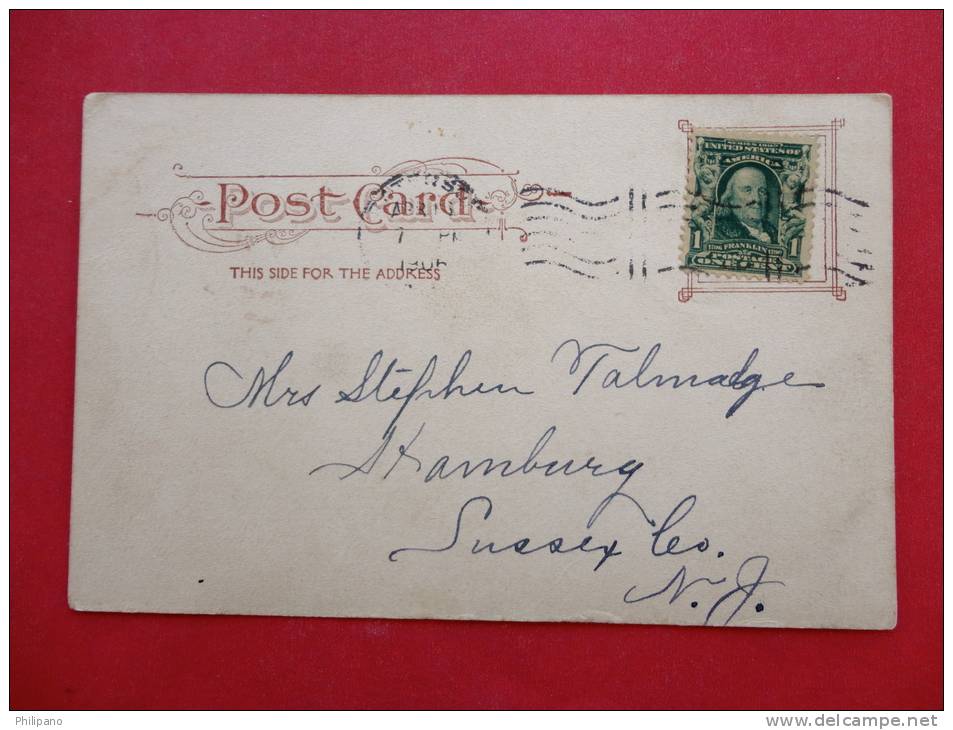 SERIES 1902
UNITED STATES OF
AMERICA
Post Card
APR
7 PM
1906
1 FRANKLIN 1
POSTAGE
ONE CENT
THIS SIDE FOR THE ADDRESS
Mrs Stephen Talmadge
Hamburg
Sussex Co.
N. J.
Philipano
www.delcampe.net